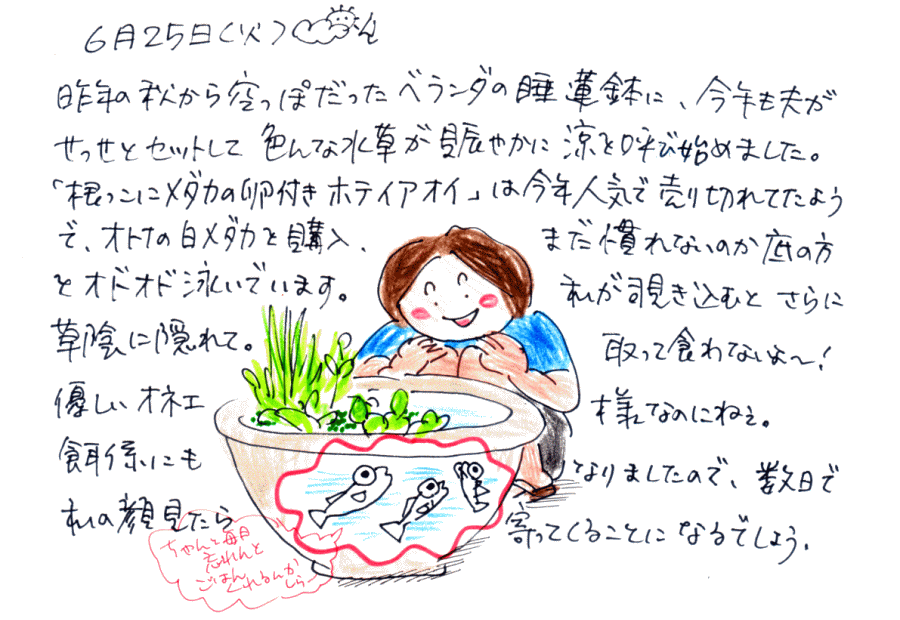 6月25日(火)
昨年の秋から空っぽだったベランダの睡蓮鉢に、今年も夫が
せっせとセットして 色んな水草が賑やかに 涼を呼び始めました。
「根っこにメダカの卵付き ホテイアオイ」は今年人気で売り切れてたよう
で、オトナの白メダカを購入、 まだ慣れないのか底の方
をオドオド泳いでいます。 私が覗き込むと さらに
草陰に隠れて。 取って食わないよ〜!
優しいオネエ 様なのにねぇ。
餌係にも なりましたので、数日で
私の顔見たら 寄ってくることになるでしょう。
ちゃんと毎日
忘れんと
ごはん
くれるんか
しら